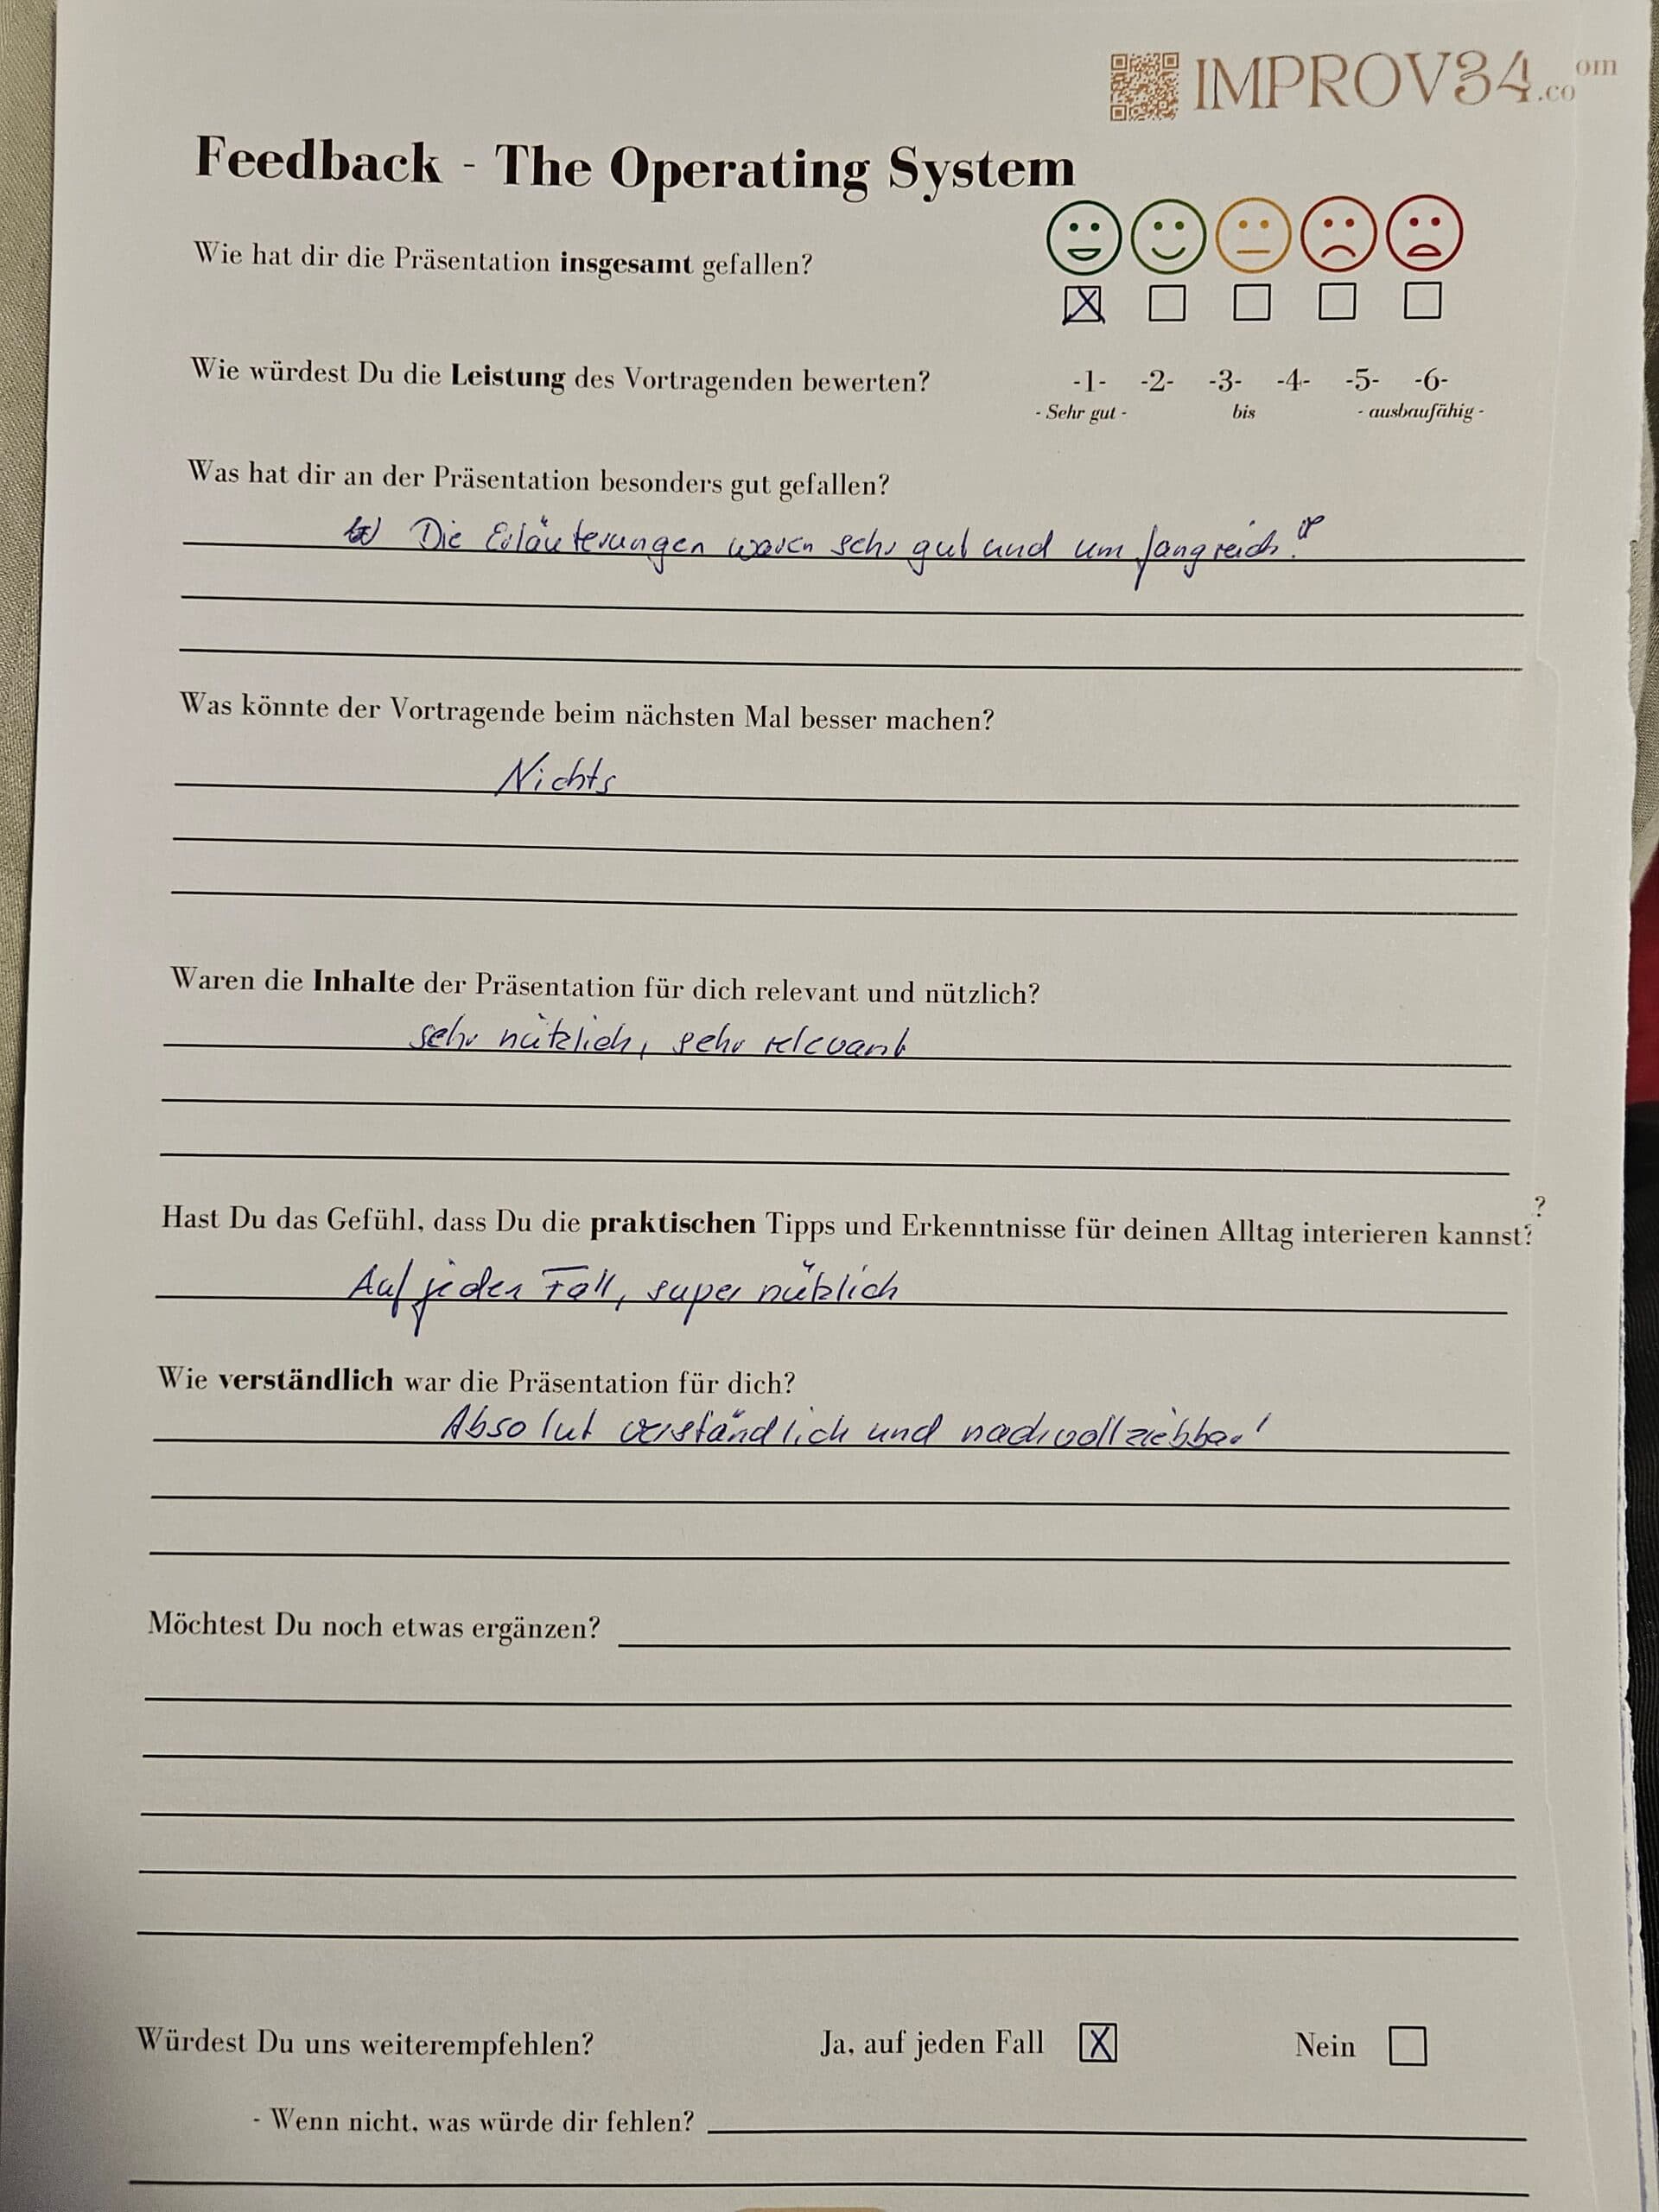 IMPROV34.co om
Feedback - The Operating System
Wie hat dir die Präsentation insgesamt gefallen?
Wie würdest Du die Leistung des Vortragenden bewerten? -1- -2- -3- -4- -5- -6-
- Sehr gut - bis - ausbaufähig -
Was hat dir an der Präsentation besonders gut gefallen?
Die Erläuterungen waren sehr gut und umfangreich!
Was könnte der Vortragende beim nächsten Mal besser machen?
Nichts
Waren die Inhalte der Präsentation für dich relevant und nützlich?
sehr nützlich, sehr relevant
?
Hast Du das Gefühl, dass Du die praktischen Tipps und Erkenntnisse für deinen Alltag interieren kannst?
Auf jeden Fall, super nützlich
Wie verständlich war die Präsentation für dich?
Absolut verständlich und nachvollziehbar!
Möchtest Du noch etwas ergänzen?
Würdest Du uns weiterempfehlen? Ja, auf jeden Fall X Nein
- Wenn nicht, was würde dir fehlen?